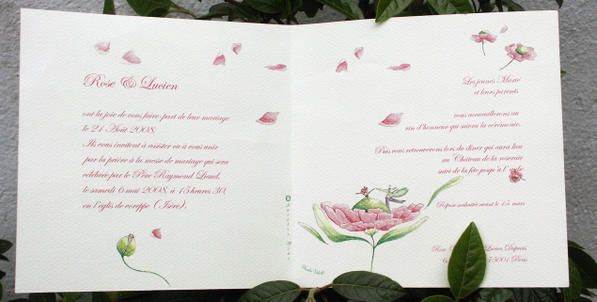 Rose & Lucien
ont la joie de vous faire-part de leur mariage
le 21 Août 2008.
Ils vous invitent à assister ou à vous unir
par la prière à la messe de mariage qui sera
célébrée par le Père Raymond
le samedi 6 mai 2008, à 15 heures 30,
en l'église de voreppe (Isère).
Les jeunes Marié
et leurs parents
vous accueilleront au
vin d'honneur qui suivra la cérémonie.
Puis vous retrouverons lors du dîner qui aura lieu
au Château de la roseraie
suivi de la fête jusqu'à l'
Réponse souhaitée avant le 15 mars
Lucien Dupuis
75001 Paris